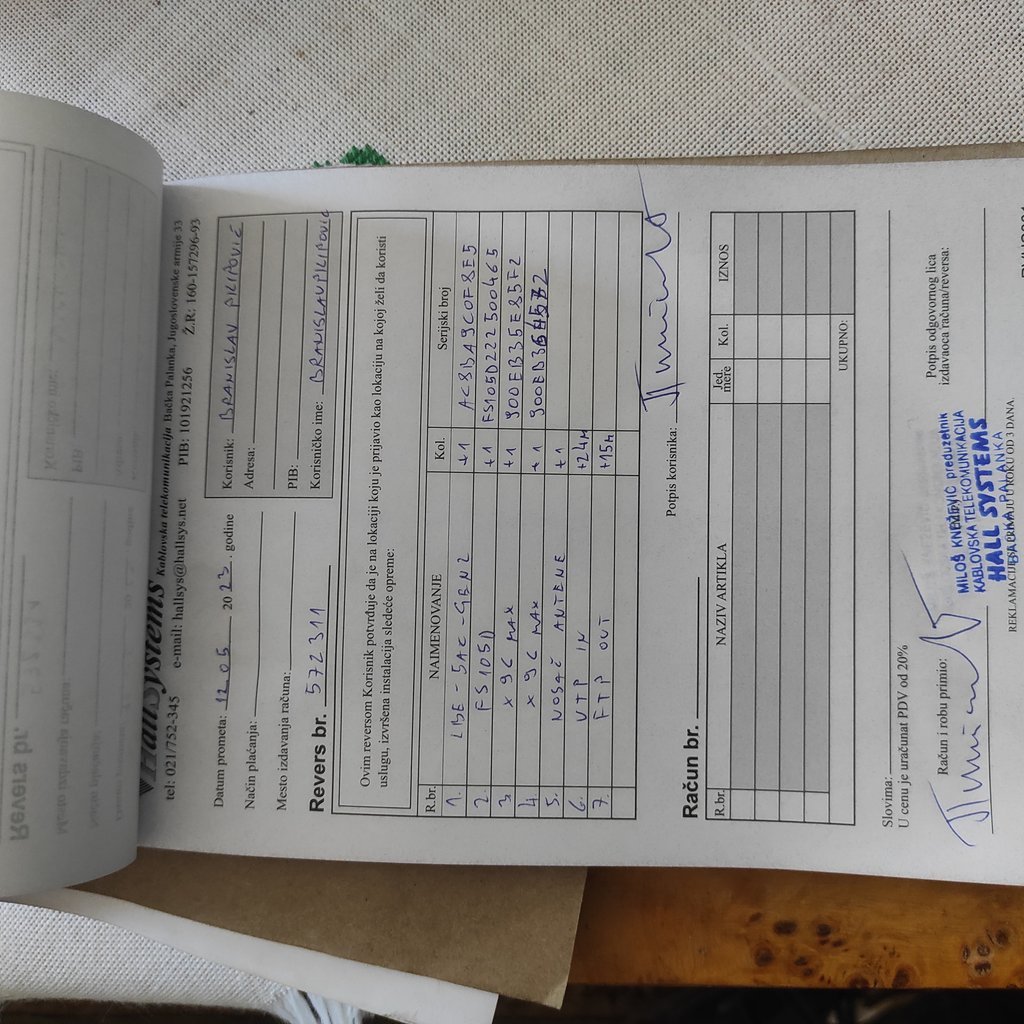 HallSystems Kablovska telekomunikacija Bačka Palanka, Jugoslovenske armije 33
tel: 021/752-345 e-mail: hallsys@hallsys.net PIB: 101921256 Ž.R: 160-157296-93
Datum prometa: 12.05 2023. godine
Način plaćanja:
Mesto izdavanja računa:
Revers br. 572311
Korisnik: BRANISLAV PILIPOVIĆ
Adresa:
PIB:
Korisničko ime: BRANISLAVPILIPOVIC
Ovim reversom Korisnik potvrđuje da je na lokaciji koju je prijavio kao lokaciju na kojoj želi da koristi
uslugu, izvršena instalacija sledeće opreme:
R.br. NAIMENOVANJE Kol. Serijski broj
1. LBE-5AC-GEN2 +1 AC8BA9C0F8E5
2. FS105D +1 FS105D222500465
3. X96 MAX +1 900EB35E85F2
4. X96 MAX +1
5. NOSAČ ANTENE +1
6. UTP IN +24M
7. FTP OUT +15M
Potpis korisnika:
Račun br.
R.br. NAZIV ARTIKLA Jed. mere Kol. IZNOS
UKUPNO:
Slovima:
U cenu je uračunat PDV od 20%
Račun i robu primio:
Potpis odgovornog lica
izdavaoca računa/reversa:
MILOŠ KNEŽEVIĆ preduzetnik
KABLOVSKA TELEKOMUNIKACIJA
HALL SYSTEMS
BAČKA PALANKA
REKLAMACIJE SE PRIMAJU U ROKU OD 3 DANA.
Revers br.